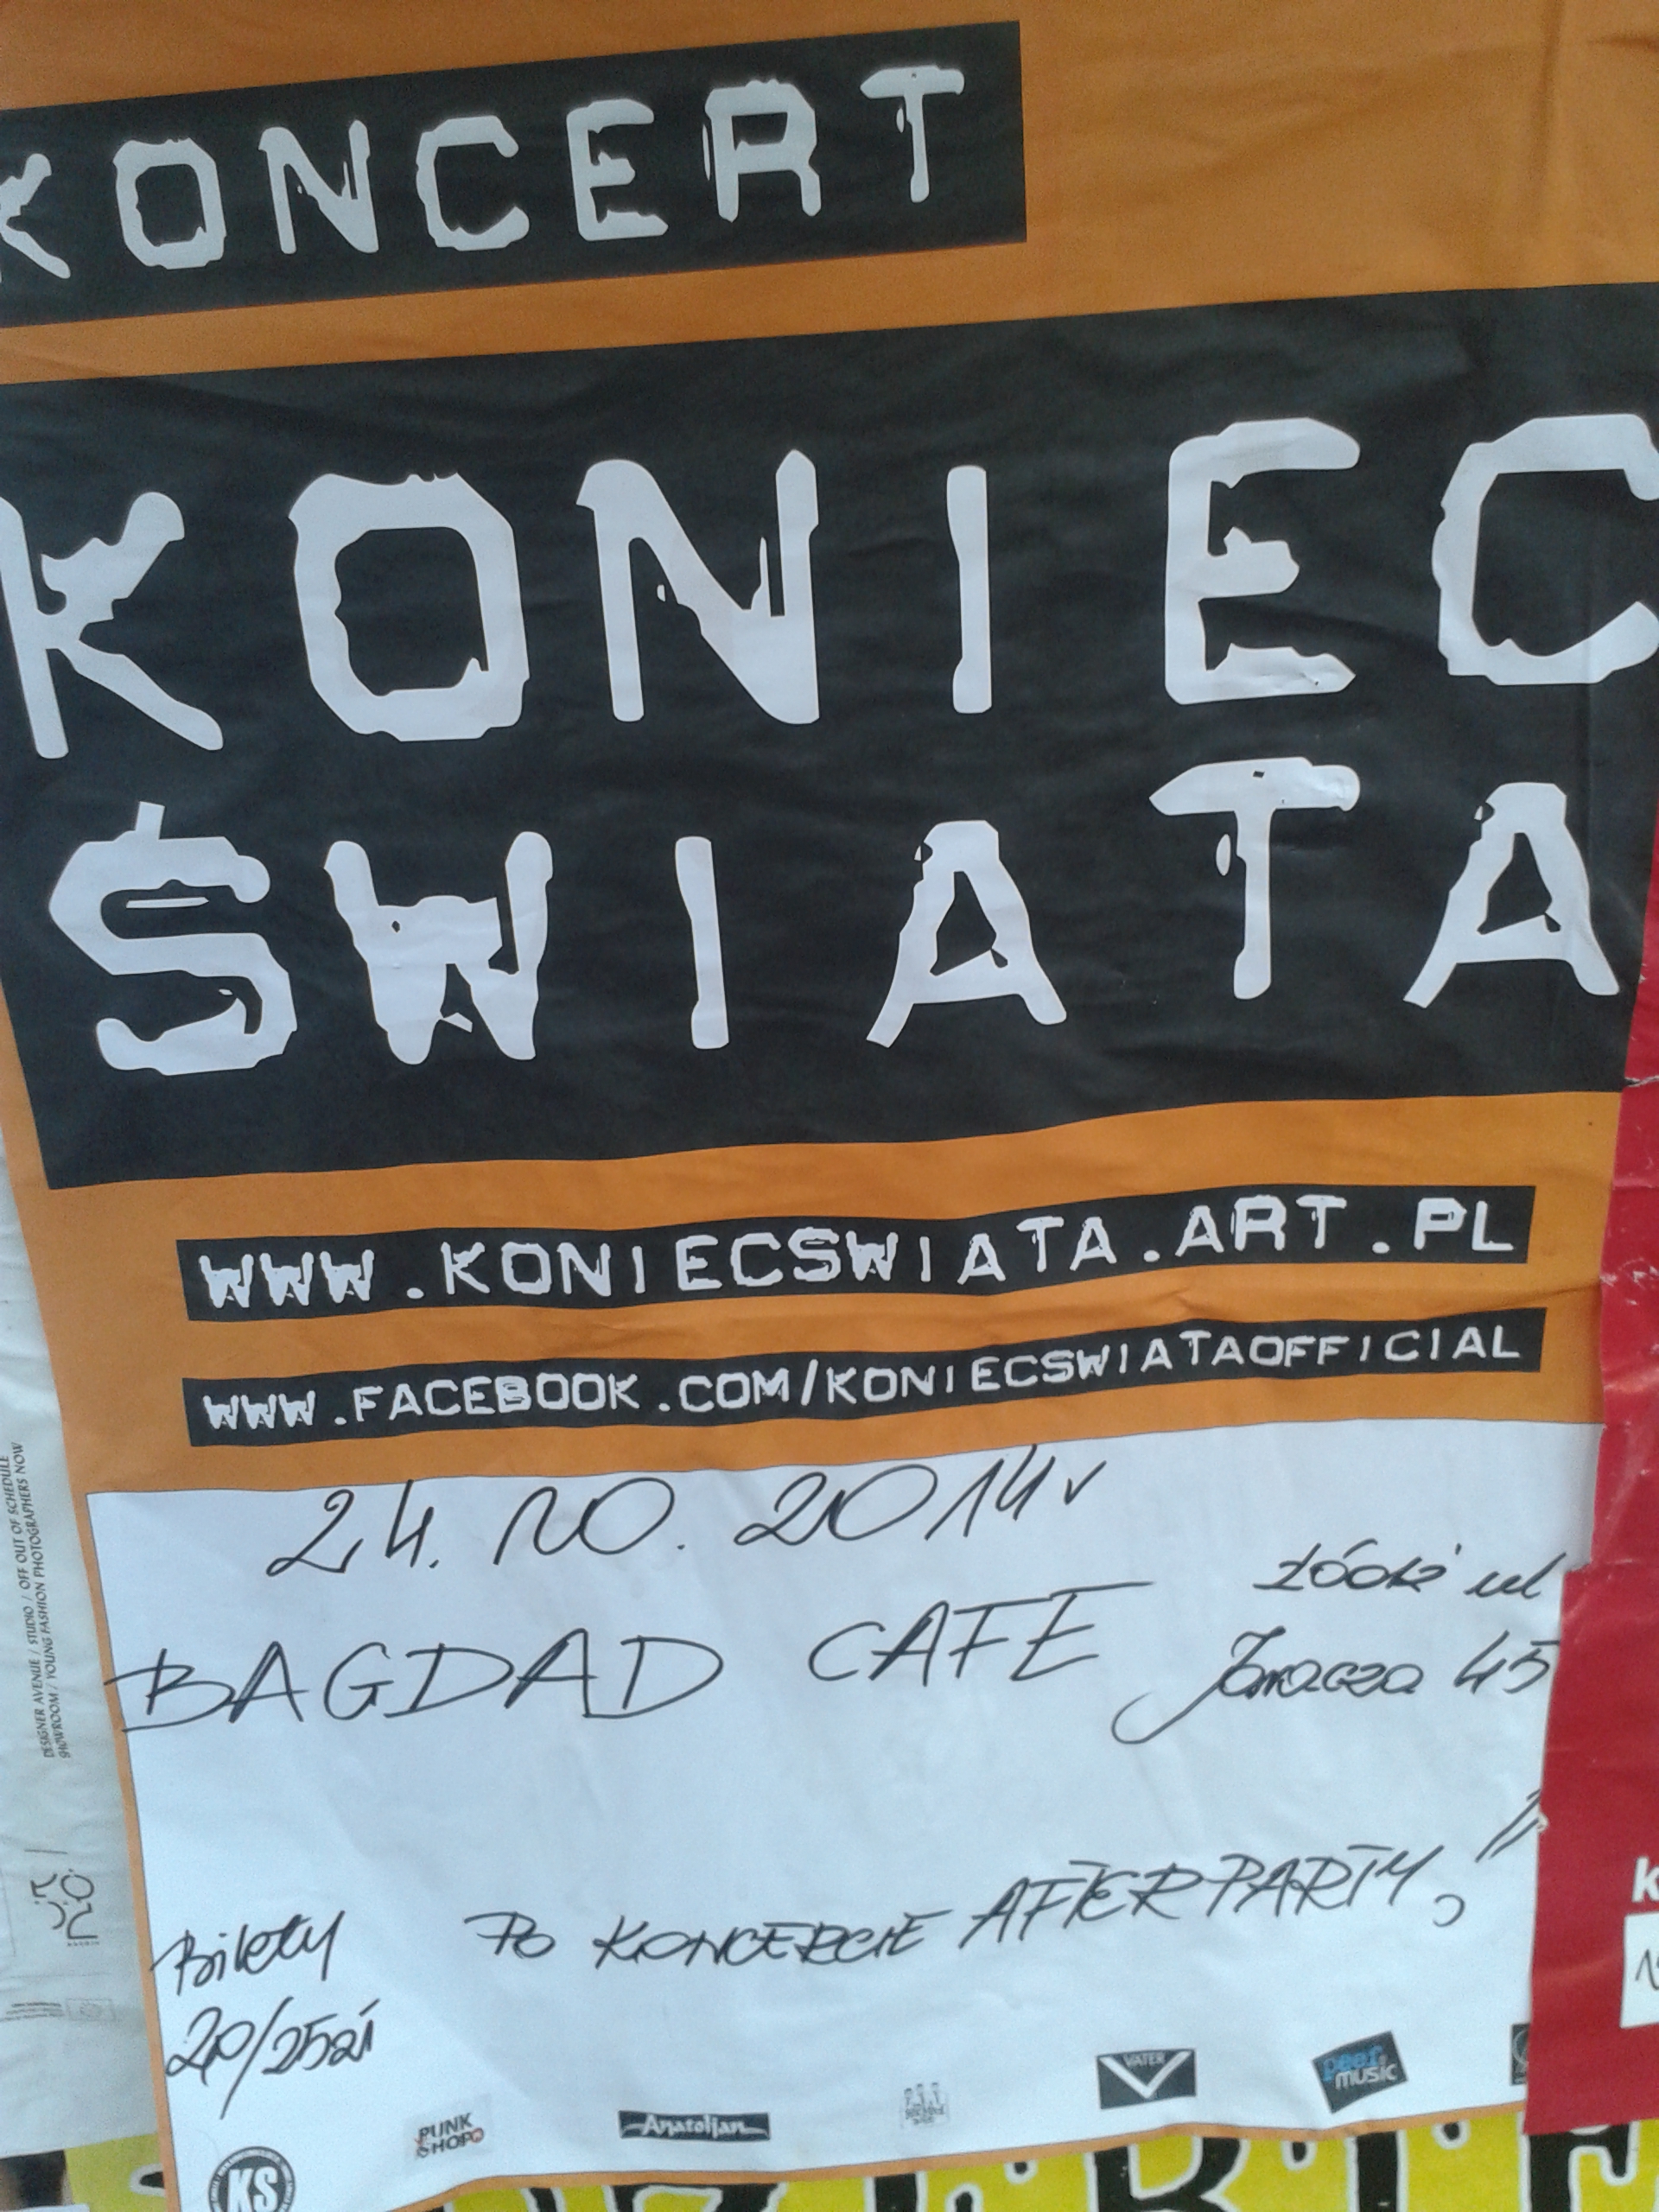 KONCERT
KONIEC
ŚWIATA
WWW.KONIECSWIATA.ART.PL
WWW.FACEBOOK.COM/KONIECSWIATAOFFICIAL
24.10.2014r
BAGDAD CAFE
Łódź ul
Jaracza 45
PO KONCERCIE AFTERPARTY
Bilety
20/25zł
KS
PUNK
SHOP
Anatolian
VATER
peef
music
DESIGNER AVENUE / STUDIO / OFF OUT OF SCHEDULE
SHOWROOM / YOUNG FASHION PHOTOGRAPHERS NOW